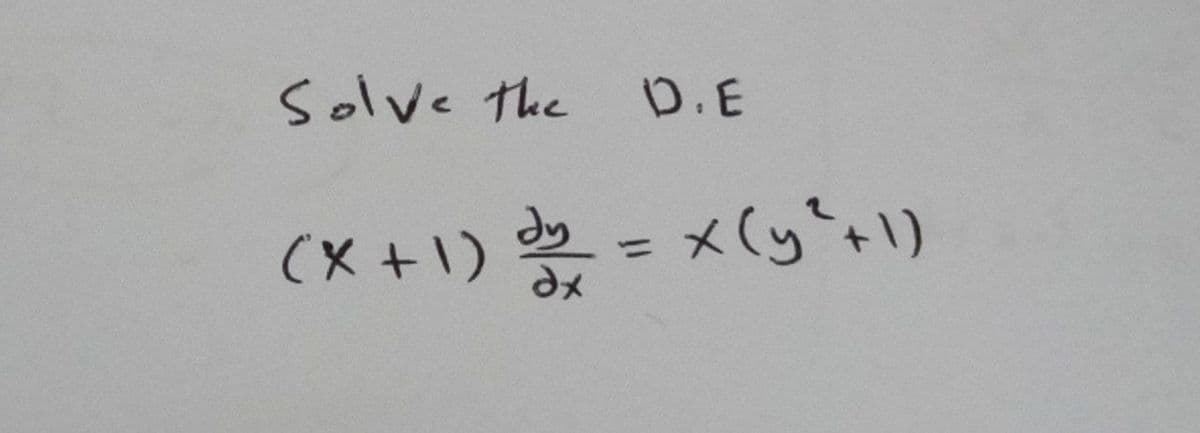 Solve the D.E
(x + 1) dy/dx = x(y² + 1)